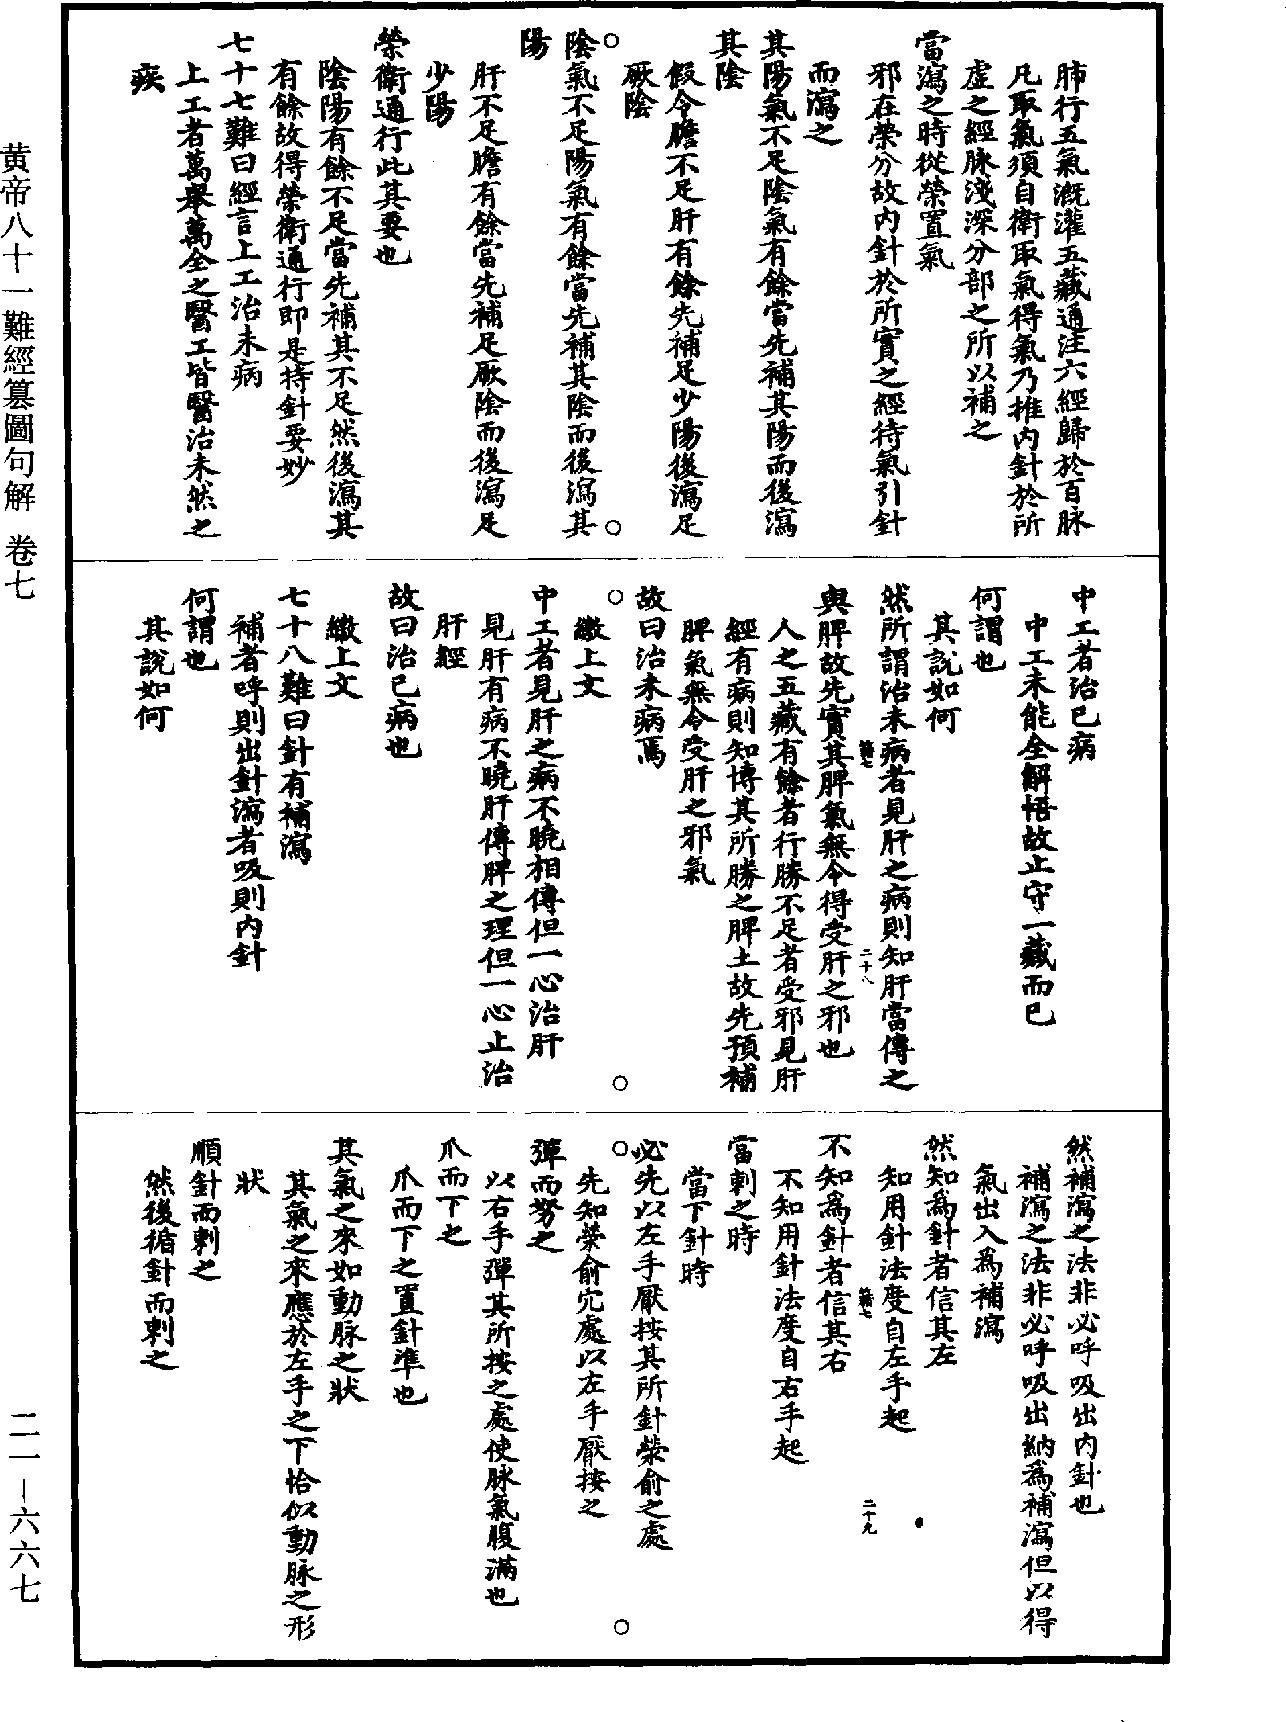 肺行五氣溉灌五藏通注六經歸於百脉
凡取氣須自衛取氣得氣乃推內針於所
虛之經脉淺深分部之所以補之
當瀉之時從榮置氣
邪在榮分故內針於所實之經待氣引針
而瀉之
其陽氣不足陰氣有餘當先補其陽而後瀉
其陰
假令膽不足肝有餘先補足少陽後瀉足
厥陰
陰氣不足陽氣有餘當先補其陰而後瀉其
陽
肝不足膽有餘當先補足厥陰而後瀉足
少陽
榮衛通行此其要也
陰陽有餘不足當先補其不足然後瀉其
有餘故得榮衛通行即是持針要妙
七十七難曰經言上工治未病
上工者萬舉萬全之醫工皆醫治未然之
疾
中工者治已病
中工未能全解悟故止守一藏而已
何謂也
其說如何
然所謂治未病者見肝之病則知肝當傳之
與脾故先實其脾氣無令得受肝之邪也
人之五藏有餘者行勝不足者受邪見肝
經有病則知傳其所勝之脾土故先預補
脾氣無令受肝之邪氣
故曰治未病焉
繳上文
中工者見肝之病不曉相傳但一心治肝
見肝有病不曉肝傳脾之理但一心止治
肝經
故曰治已病也
繳上文
七十八難曰針有補瀉
補者呼則出針瀉者吸則內針
何謂也
其說如何
然補瀉之法非必呼吸出內針也
補瀉之法非必呼吸出納為補瀉但以得
氣出入為補瀉
然知為針者信其左
知用針法度自左手起
不知為針者信其右
不知用針法度自右手起
當刺之時
當下針時
必先以左手厭按其所針滎俞之處
先知滎俞穴處以左手厭按之
彈而努之
以右手彈其所按之處使脉氣䐜滿也
爪而下之
爪而下之置針準也
其氣之來如動脉之狀
其氣之來應於左手之下恰似動脉之形
狀
順針而刺之
然後循針而刺之
黃帝八十一難經篡圖句解 卷七
二一—六六七
二十八
二十九